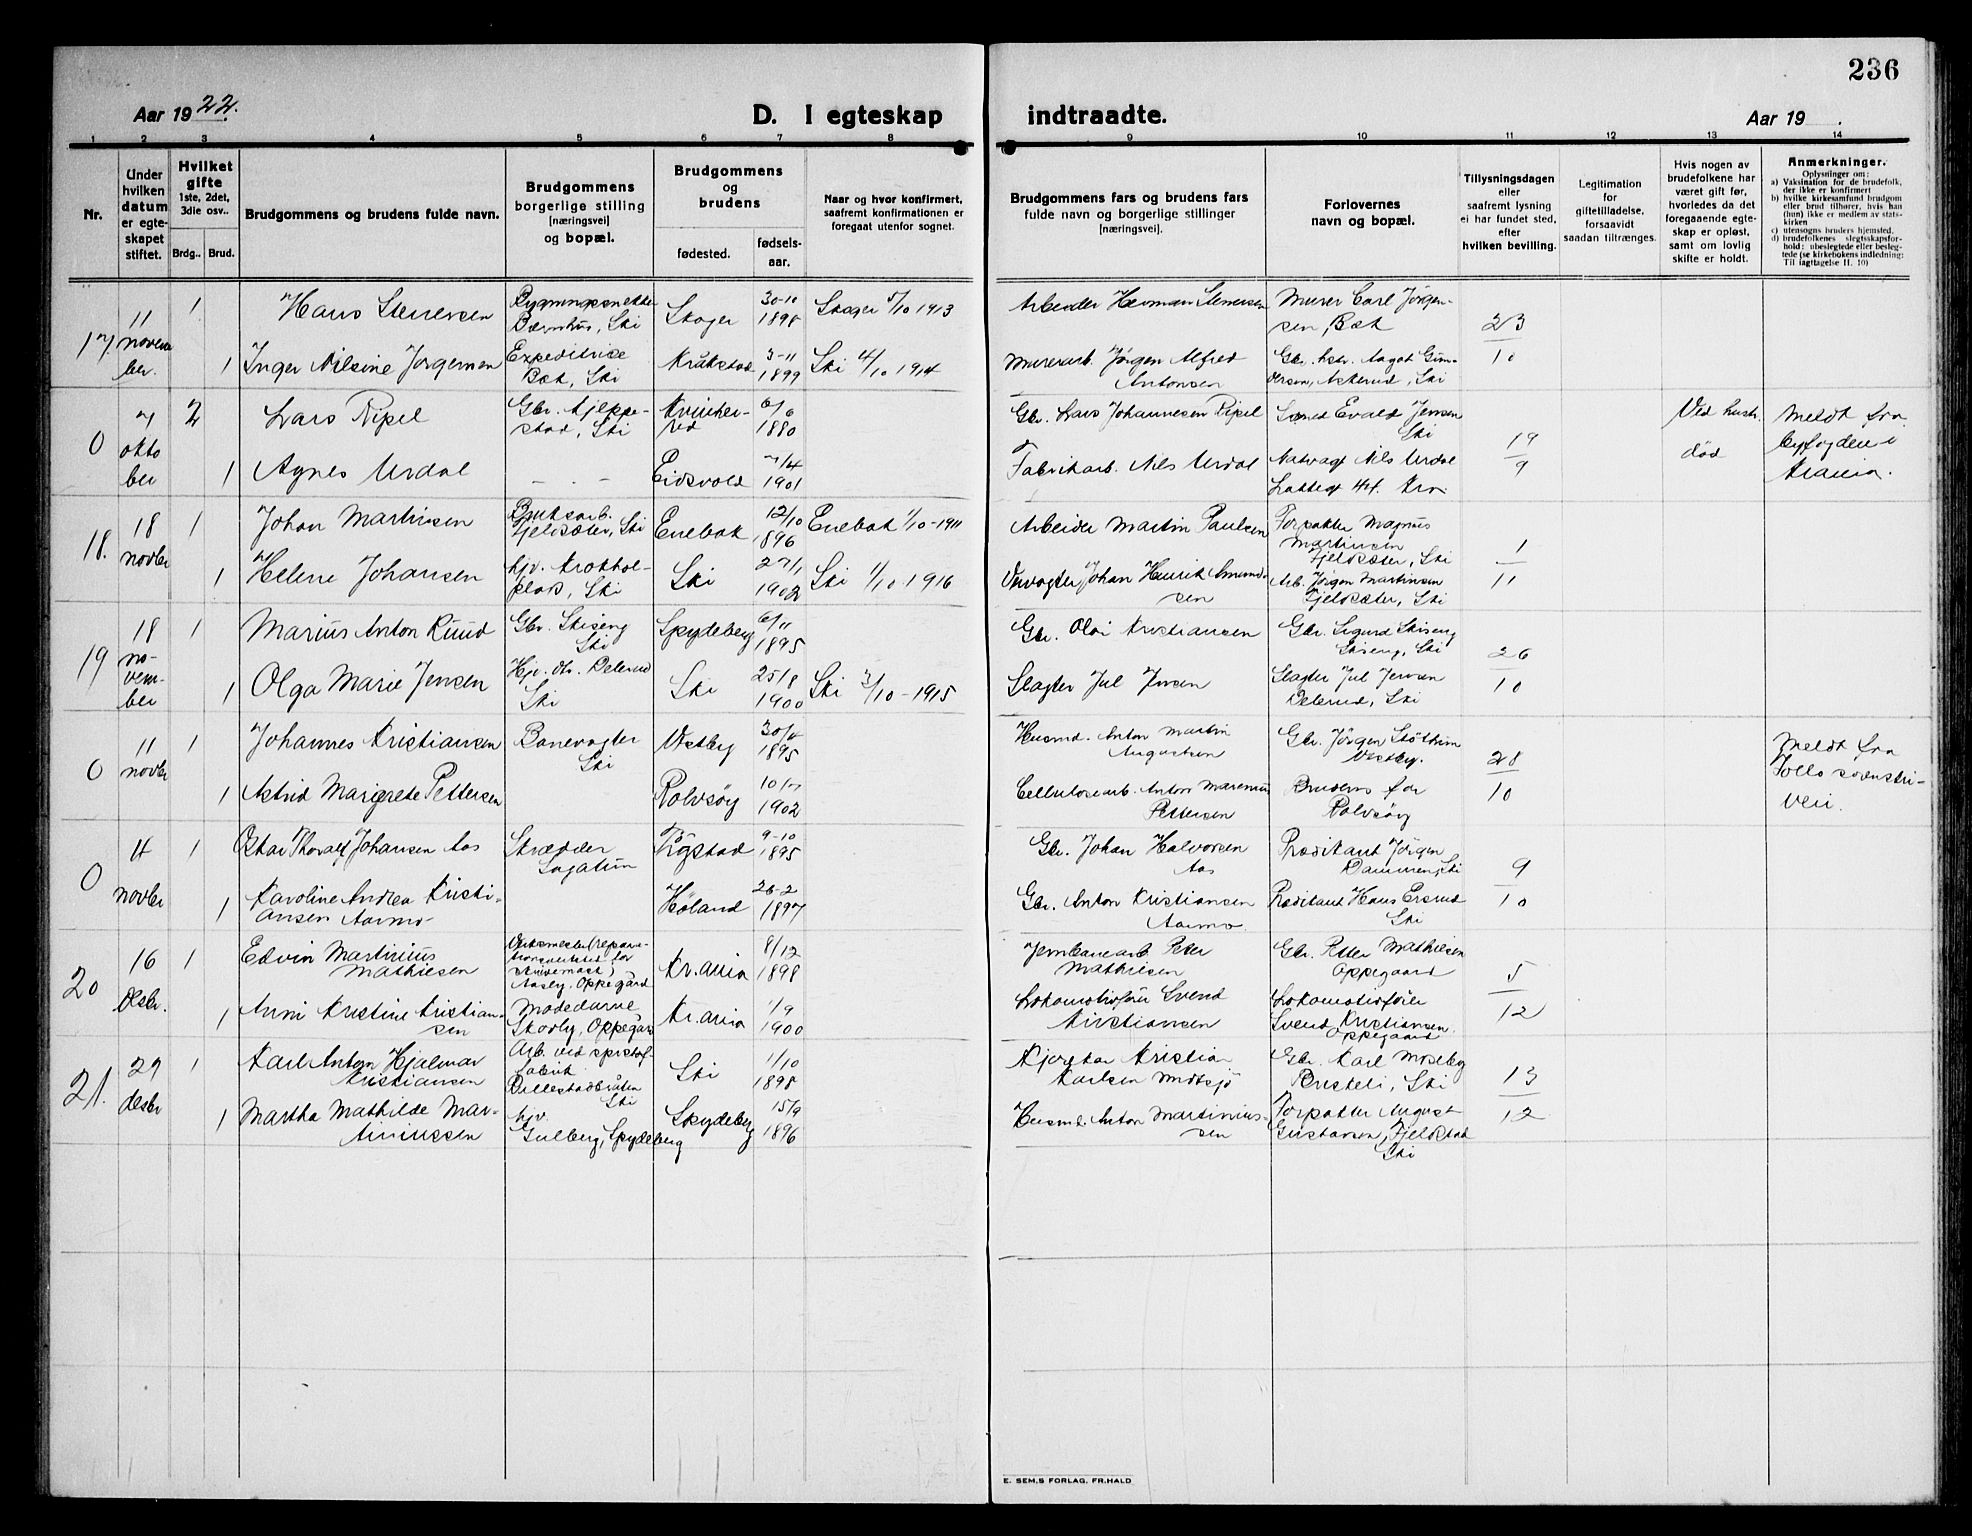 236
Aar 1922.
D. I egteskap
indtraadte.
Aar 19
1 2 3 4 5 6 7 8 9 10 11 12 13 14
Nr.
Under
hvilken
datum
er egte-
skapet
stiftet.
Hvilket
gifte
1ste, 2det,
3die osv..
Brdg.. Brud.
Brudgommens og brudens fulde navn.
Brudgommens
borgerlige stilling
[næringsvei]
og bopæl.
Brudgommens
og
brudens
fødested.
fødsels-
aar.
Naar og hvor konfirmert,
saafremt konfirmationen er
foregaat utenfor sognet.
Brudgommens fars og brudens fars
fulde navn og borgerlige stillinger
[næringsvei].
Forlovernes
navn og bopæl.
Tillysningsdagen
eller
saafremt lysning
ei har fundet sted,
efter
hvilken bevilling.
Legitimation
for
giftetilladelse,
forsaavidt
saadan tiltrænges.
Hvis nogen av
brudefolkene har
været gift før,
hvorledes da det
foregaaende egte-
skap er opløst,
samt om lovlig
skifte er holdt.
Anmerkninger.
Oplysninger om:
a) Vaksination for de brudefolk,
der ikke er konfirmert
b) hvilke kirkesamfund brudgom
eller brud tilhører, hvis han
(hun) ikke er medlem av stats-
kirken
c) utensogns bruders hjemsted.
d) brudefolkenes slegtsskapsfor-
hold: ubeslegtede eller besleg-
tede (se kirkebokens indledning:
Til iagttagelse II. 10)
17.
11
novem
ber.
1
Hans Stenersen
Bygningssnekker
Bærnhus, Ski
Skoger
30-10
1898
Skoger 5/10 1913
Arbeider Herman Stenersen
Murer Carl Jørgen-
sen, Bæk
23
10
1
Inger Nilsine Jørgensen
Expeditrice
Bæk, Ski
Kråkstad
3-11
1899
Ski 4/10 1914
Murerarb. Jørgen Alfred
Antonsen
Gbr. hstr. Aagot Gun-
dersen, Askerud, Ski
0
7
okto
ber
2
Lars Ripel
Gbr. Kjeppe-
stad, Ski
Kvinher-
red
6/6
1880
Gbr. Lars Johannesen Ripel
Evald Jensen
Ski
19
9
Ved hustr.
død
Meldt fra
byfogden i
Krania.
1
Agnes Urdal
- - -
Eidsvold
7/4
1901
Fabrikarb. Nils Urdal
Natvagt Nils Urdal
44. Kra.
18.
18
novber
1
Johan Martinsen
Bruksarb.
Fjeldsæter, Ski
Enebak
12/10
1896
Enebak 1/10-1911
Arbeider Martin Paulsen
Forpakter Magnus
Martinsen
Fjeldsæter, Ski
1
11
1
Helene Johansen
hjv. Krokhol-
plass, Ski
Ski
27/1
1902
Ski 1/10 1916
Johan Henrik Amund-
sen
Arb. Jørgen Martinsen
Fjeldsæter, Ski
19
18
no-
vem-
ber
1
Marius Anton Ruud
Gbr. Skiseng
Ski
Spydeberg
6/11
1895
Gbr. Olai Kristiansen
Gbr. Sigurd Skiseng
Skiseng, Ski
26
10
1
Olga Marie Jensen
Hjv. dtr. Delerud
Ski
Ski
25/8
1900
Ski 3/10-1915
Slagter Jul Jensen
Slagter Jul Jensen
Delerud, Ski
0
11
novber
1
Johannes Kristiansen
Banevogter
Ski
Vestby
1895
Husmd. Anton Martin
Augustsen
Gbr. Jørgen Støttum
Vestby.
28
10
Meldt fra
Follo sorenskri-
veri.
1
Astrid Margrete Pettersen
Rolvsøy
10/7
1902
Cellulosearb. Anton Marenius
Pettersen
Brudens far
Rolvsøy
0
4
novber
1
Oskar Thoralf Johansen Aas
Skrædder
Sagatun
Trøgstad
9-10
1895
Gbr. Johan Halvorsen
Aas
Prædikant Jørgen
Dammen, Ski
9
10
1
Karoline Andrea Kristi-
ansen Aarmo
Høland
26-2
1897
Gbr. Anton Kristiansen
Aarmo.
Prædikant Hans Ersrud
Ski
20
16
Desbr.
1
Edvin Martinius
Mathiesen
Verksmester (repara-
tionsverksted for
skrivemask.)
Aasly, Oppegård
Kr.ania
8/12
1898
Jernbanearb. Peter
Mathiesen
Gbr. Petter Mathiesen
Oppegaard
5
12
1
Anni Kristine Kristian-
sen
Modedame
Skovly, Oppegård
Kr.ania
1/9
1900
Lokomotivfører Svend
Kristiansen
Lokomotivfører
Svend Kristiansen.
Oppegaard
21.
29
desbr
1
Karl Anton Hjalmar
Kristiansen
Arb. ved sprstof-
fabrik
Ski
Ski
1/10
1898
Kjørekar Kristian
Karlsen Midtsjø
Gbr. Karl Moseby
Prusteli, Ski
13
12
1
Martha Mathilde Mar-
tiniussen
hjv.
Gulberg, Spydeberg
Spydeberg
15/9
1896
Husmd. Anton Martinius-
sen
Forpakter August
Gustavsen, Fjeldstad
Ski
E. SEM,S FORLAG, FR.HALD